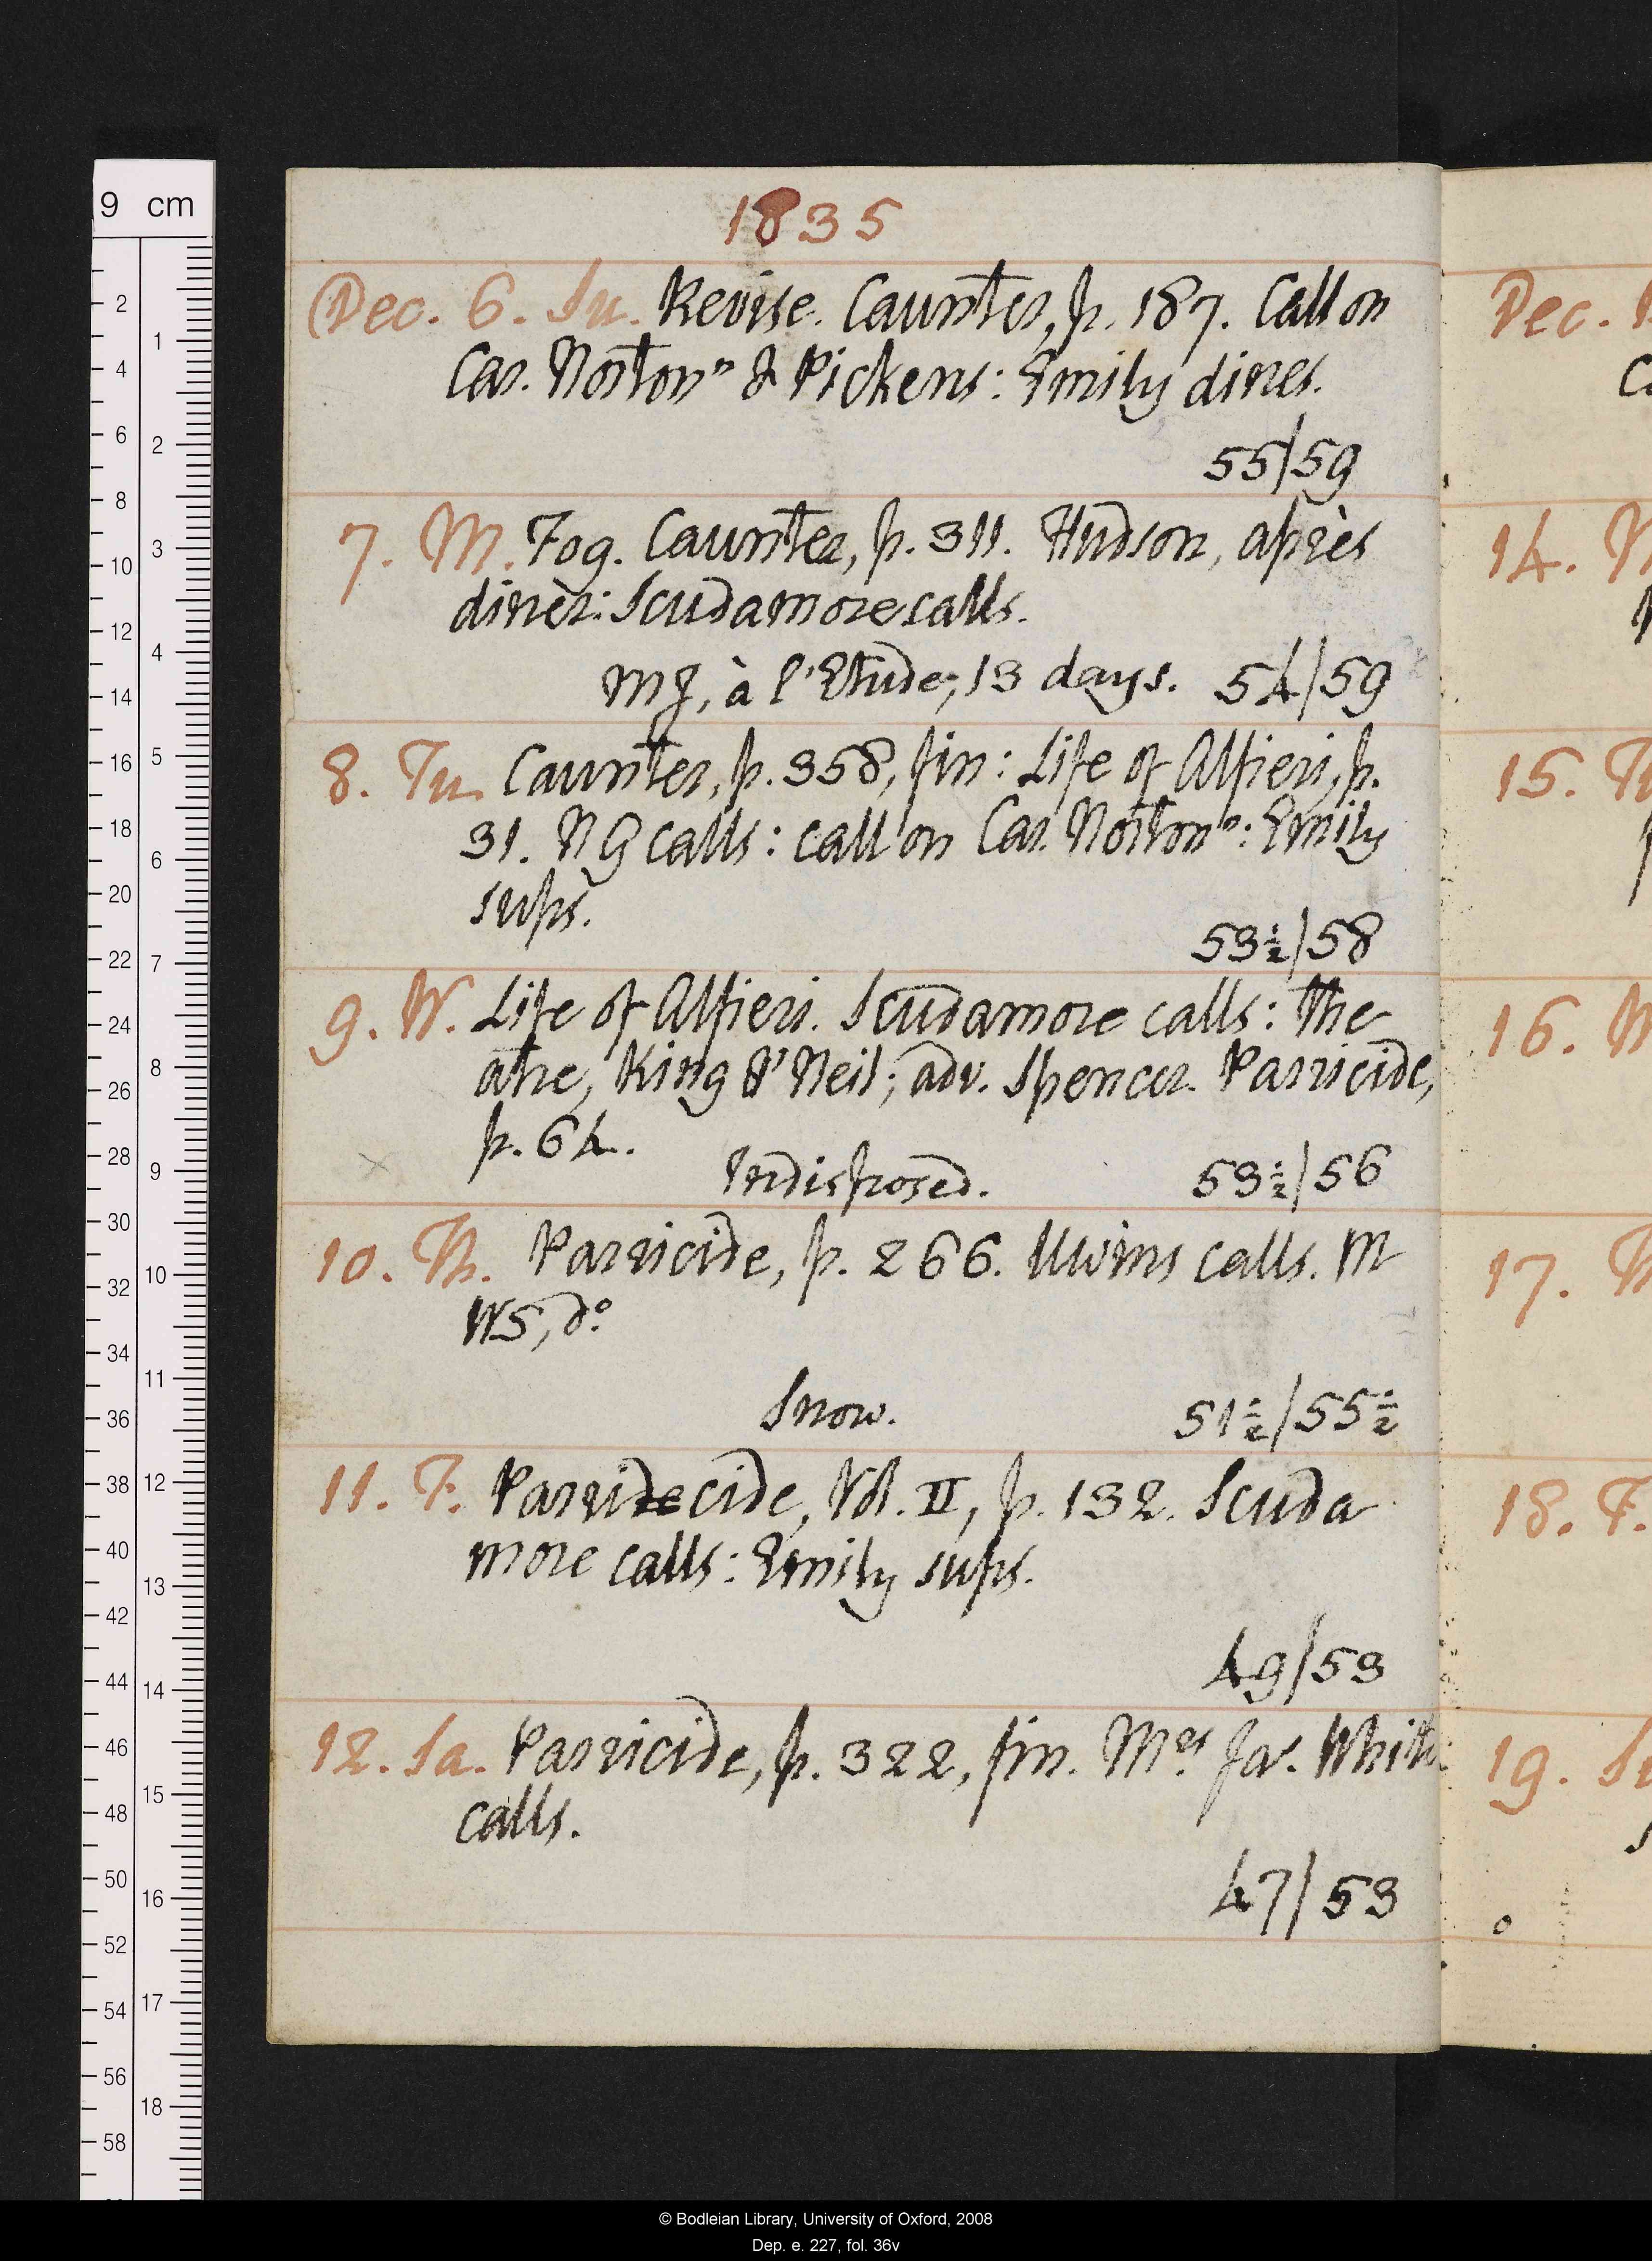 1835
Dec. 6. Su. Revise. Caunter, p. 187. Call on
Car. Norton n & Pickens: Emily dines.
55/59
7. M. Fog. Caunter, p. 311. Hudson, après
diner: Scudamore calls.
MJ, à l'Etude, 13 days. 54/59
8. Tu. Caunter, p. 358, fin: Life of Alfieri, p.
31. NG calls: call on Car. Norton n: Emily
sups.
53½/58
9. W. Life of Alfieri. Scudamore calls: The-
atre, King O'Neil; adv. Spencer. Parricide,
p. 64.
Indisposed. 53½/56
10. Th. Parricide, p. 266. Uwins calls. M
WS, do
Snow. 51½/55½
11. F. Parridecide, Vol. II, p. 132. Scuda
more calls: Emily sups.
49/53
12. Sa. Parricide, p. 322, fin. Mrs Jas. White
calls.
47/53
Dec. 
14.
15.
16.
17.
18. F.
19.
9 cm
2 4 6 8 10 12 14 16 18 20 22 24 26 28 30 32 34 36 38 40 42 44 46 48 50 52 54 56 58
1 2 3 4 5 6 7 8 9 10 11 12 13 14 15 16 17 18
© Bodleian Library, University of Oxford, 2008
Dep. e. 227, fol. 36v